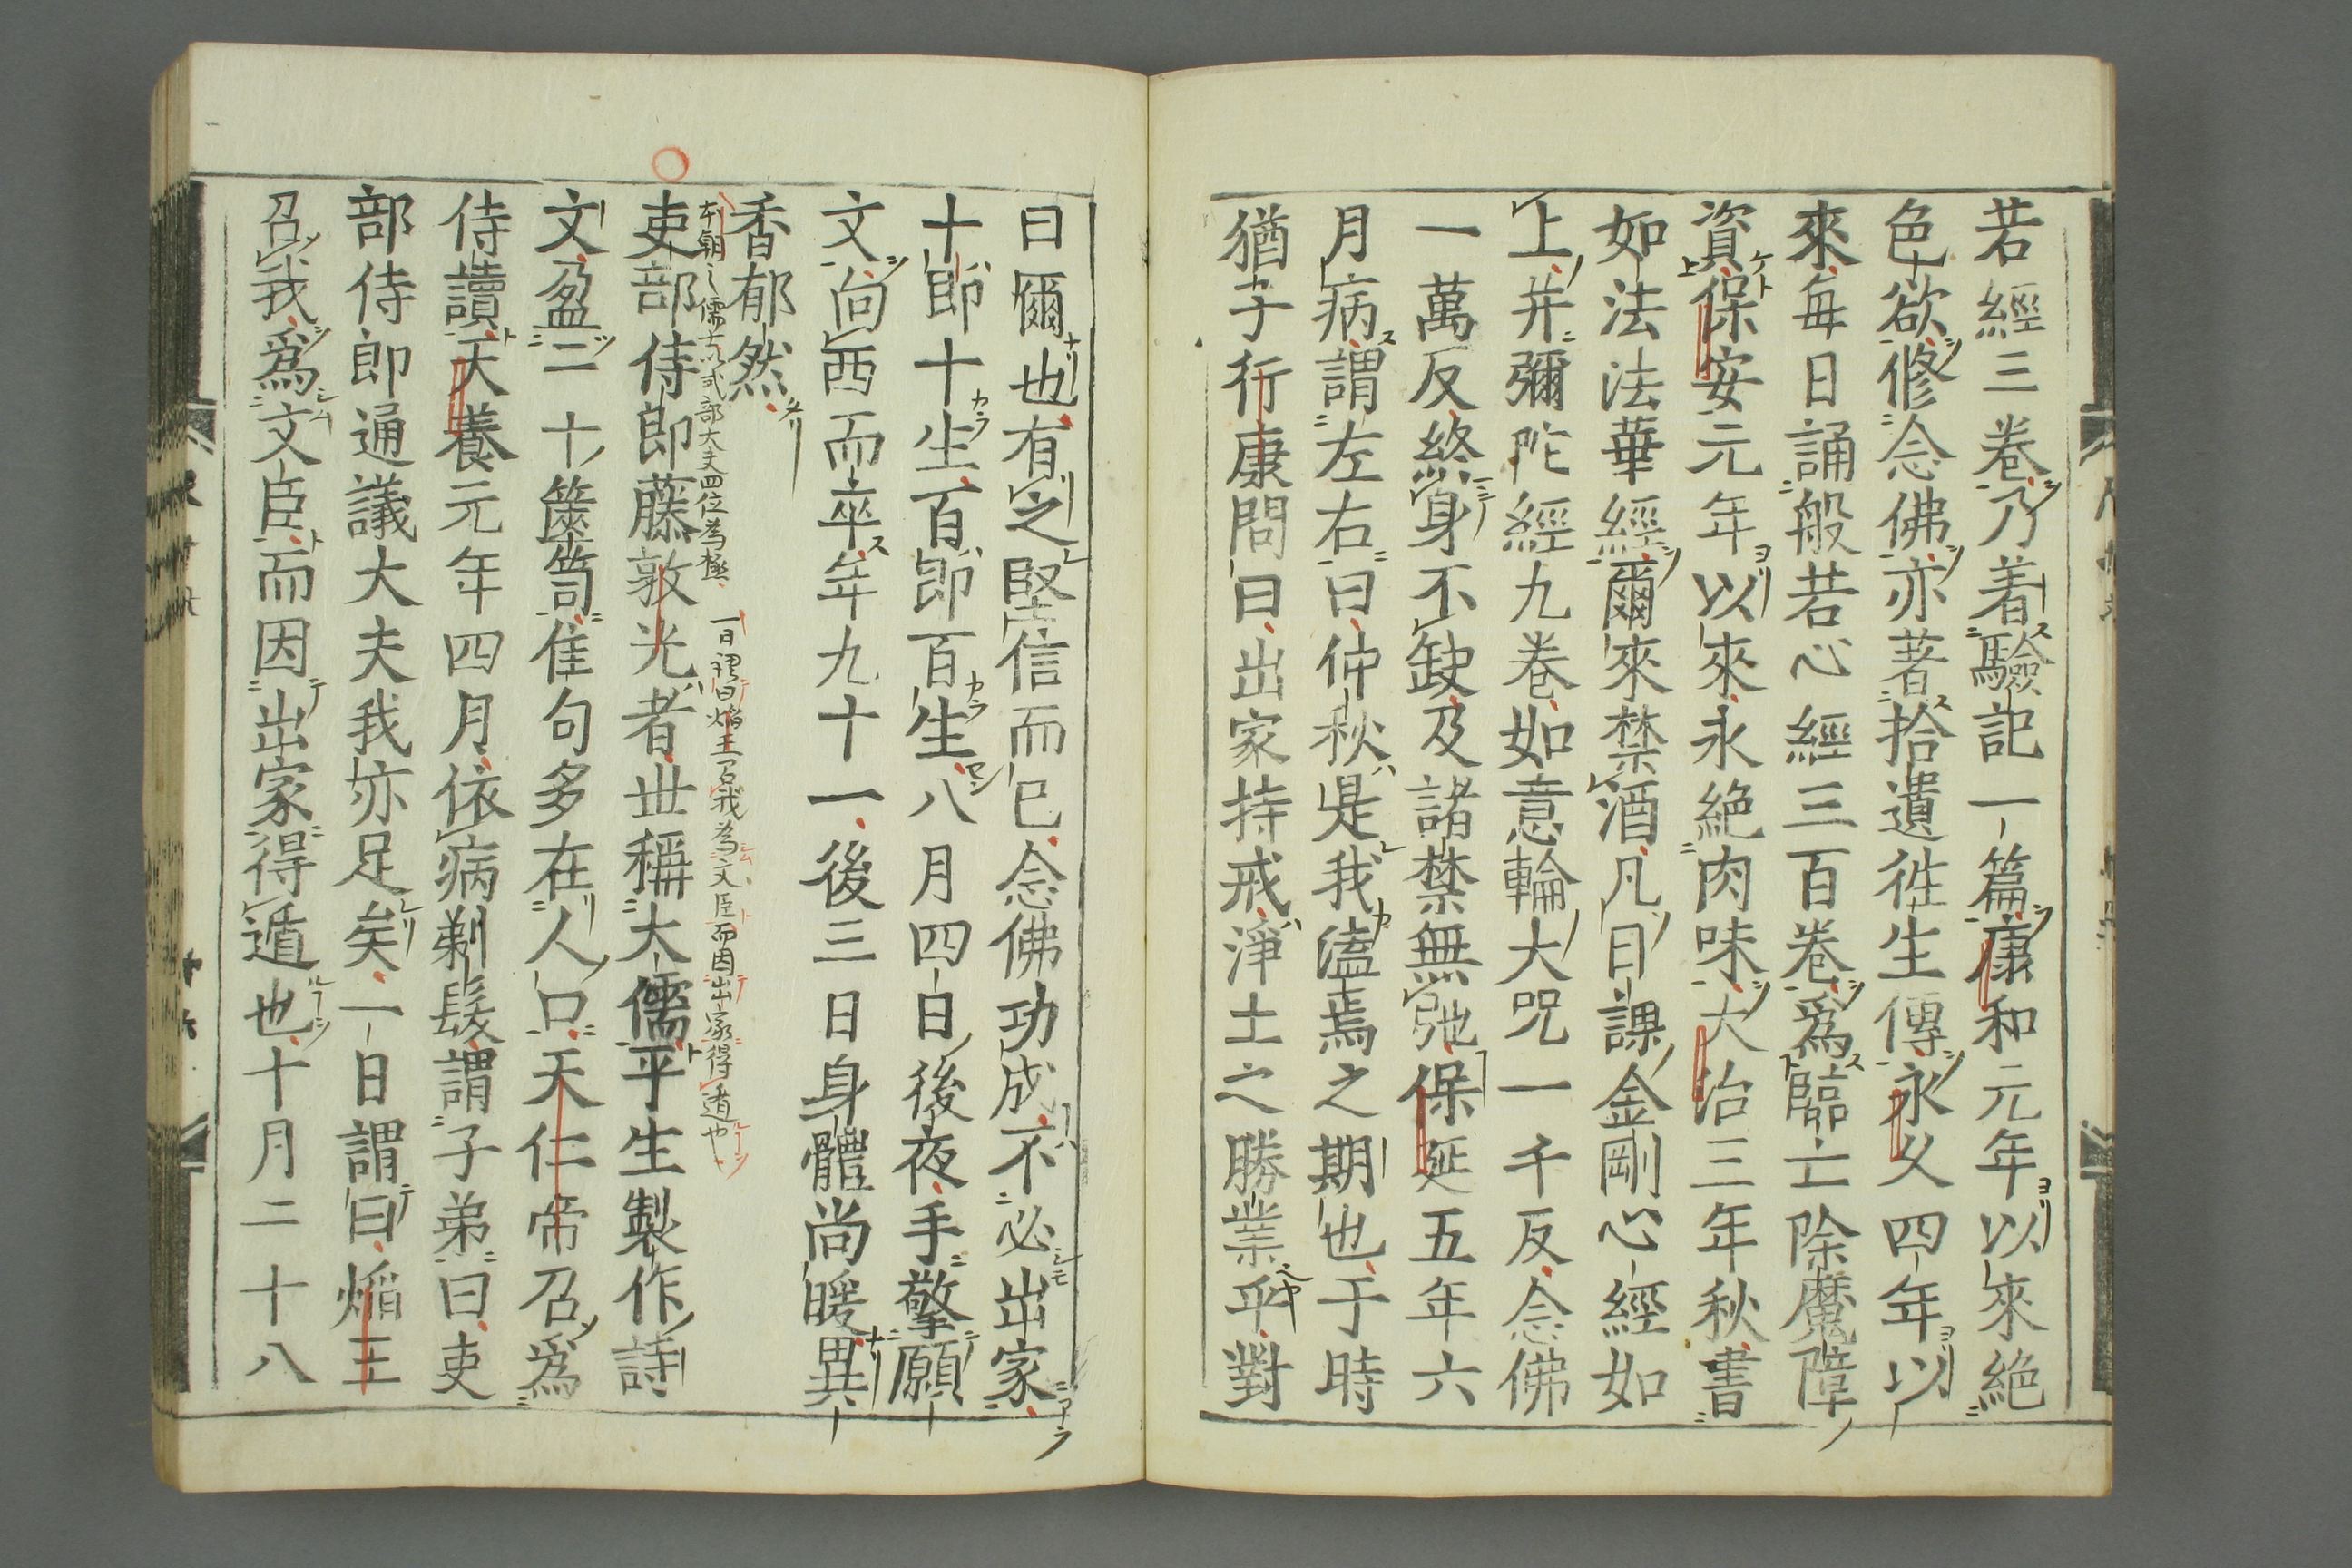 若經三卷乃着驗記一篇康和元年以來絶
色欲修念佛亦著拾遺徃生傳永久四年以
來毎日誦般若心經三百卷爲臨亡除魔障
資保安元年以來永絶肉味大治三年秋書
如法法華經爾來禁酒凡日課金剛心經如
上并彌陀經九卷如意輪大咒一千反念佛
一萬反終身不缺及諸禁無弛保延五年六
月病謂左右曰仲秋是我溘焉之期也于時
猶子行康問曰出家持戒淨土之勝業乎對
曰爾也有之堅信而已念佛功成不必出家
十即十生百即百生八月四日後夜手擎願
文向西而卒年九十一後三日身體尚暖異
香郁然
本朝之儒士以式部大夫四位為極
一日謂曰焔王召我為文臣而因出家得遁也
吏部侍郎藤敦光者世稱大儒平生製作詩
文盈二十篋笥佳句多在人口天仁帝召爲
侍讀天養元年四月依病剃髮謂子弟曰吏
部侍郎通議大夫我亦足矣一日謂曰焔王
召我爲文臣而因出家得遁也十月二十八